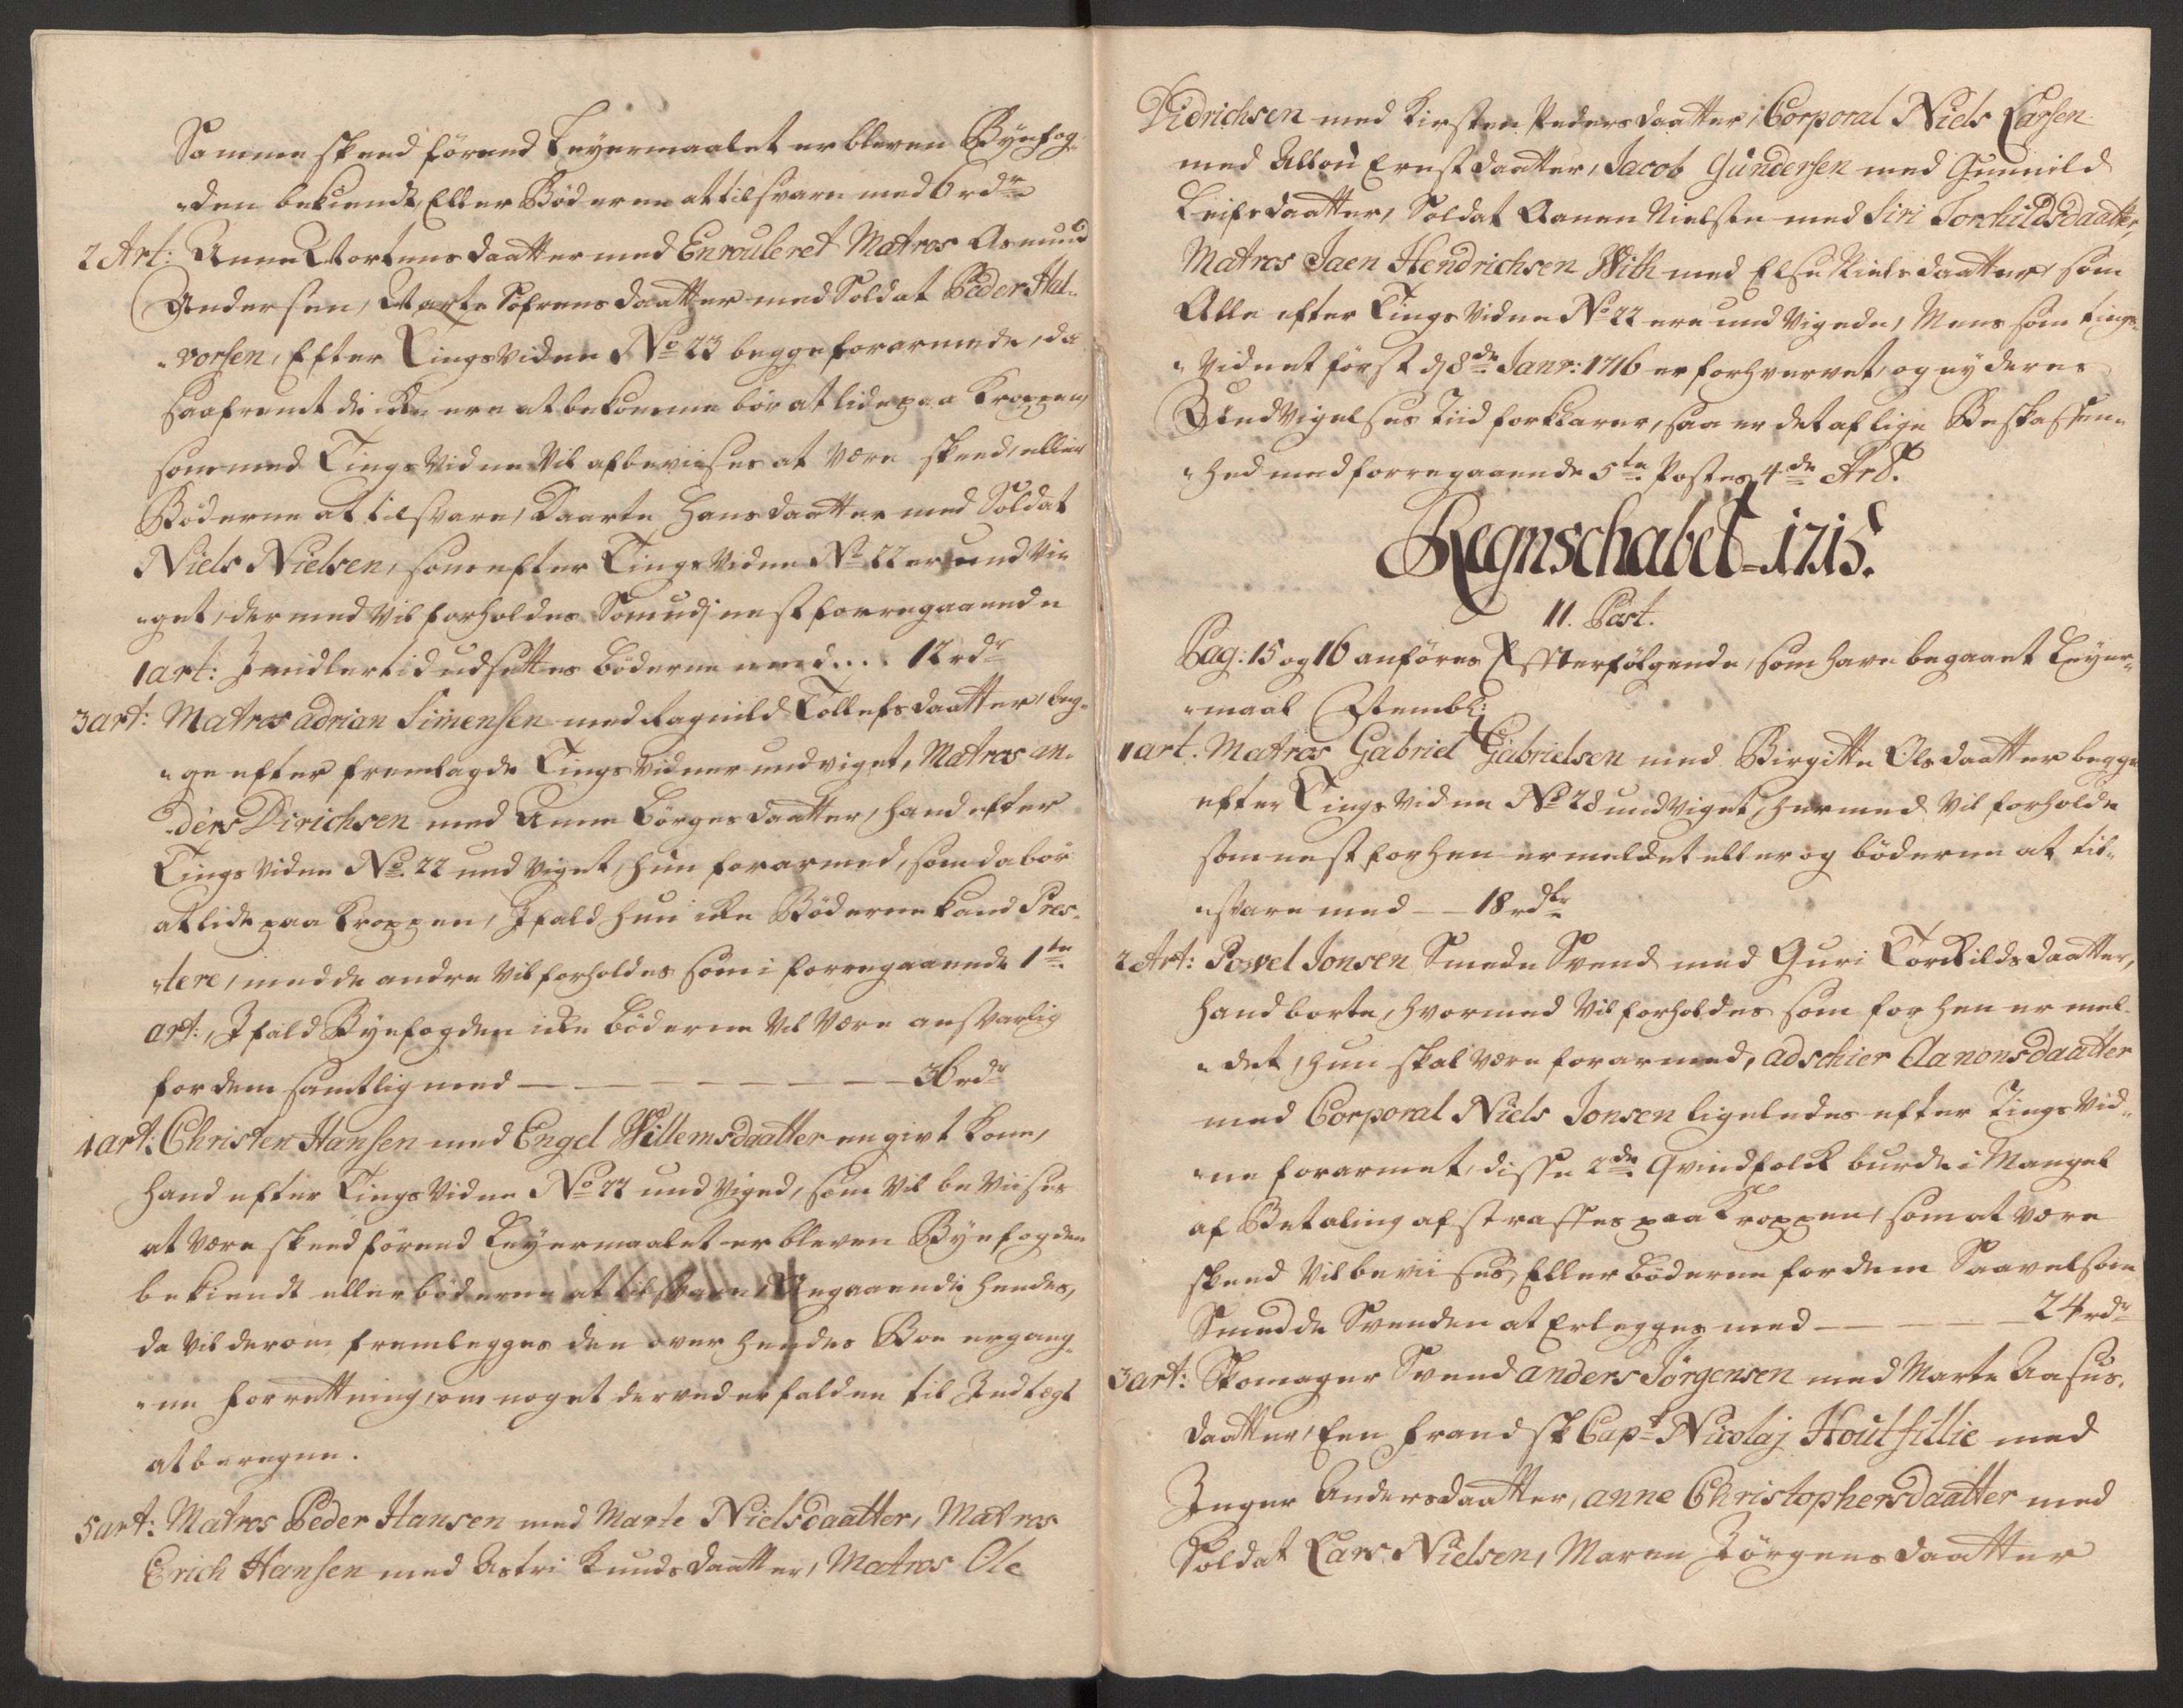 Samme skeed förend Leyermaalet er bleven Byefog-
den bekiendt, Eller Böderne at tilsvare med 6 rdr
2 Art: Anne Mortensdaatter med Enrouleret Matros Asmund
Andersen, Marte Sofrensdaatter med Soldat Peder Hal-
vorsen, Efter Tings Vidne No 23 begge forarmede, da
saafremt de icke ere at bekomme bör at lide paa Kroppen
som med Tings Vidne Vil afbevises at være skeed, eller
Böderne at tilsvare, Maarte Hansdaatter med Soldat
Niels Nielsen, som efter Tings Vidne No 22 er und Vi-
get, der med Vil forholdes Som udj nest forregaaende
1 art: Imidlertid udsettes böderne med . . . 12 rdr
3 art: Matros adrian Simensen med Ragnild Tollefsdaatter, beg-
ge efter fremlagde Tings Vidner undviget, Matros An-
ders Dirichsen med Anne Börgesdaatter, hand efter
Tings Vidne No 22 und Viget, hun forarmed, som da bör
at lide paa Kroppen, Ifald hun icke Böderne kand Pres-
tere, med de andre Vil forholdes som i forregaaende 1te
art:, Ifald Byefogden icke böderne Vil Være ansvarlig
for dem samtlig med — — — — — — 36 rdr
4 art: Christen Hansen med Engel Willemsdaatter en givt Kone,
hand efter Tings Vidne No 22 und Viged, som Vil beViises
at være skeed förend Leyermaalet er bleven Byefogden
bekiendt eller böderne at tilsvare, Angaaende hendes,
da Vil derom fremlegges den over hendes Boe ergang-
ne forrettning, om noget derved er falden til Indtægt
at beregne.
5 art: Matros Peder Hansen med Marte Nielsdaatter, Matros
Erich Hansen med Astri Knudsdaatter, Matros Ole
Didrichsen med Kirsten Pedersdaatter, Corporal Niels Larsen
med Ernstdaatter, Jacob Gundersen med Gunnild
Leifsdaatter, Soldat Aanen Nielsen med Siri Torkildsdaatter,
Matros Jaen Hendrichsen With med Else Nielsdaatter, som
Alle efter Tings Vidne No 22 ere und Vigede, Mens som tings-
Vidnet först d 8de Janr: 1716 er forhvervet, og ey deres
Undvigelses Tiid forklarer, saa er det af lige Beskaffen-
hed med forregaaende 5te Postes 4de Art.
Regnschabet 1715.
11. Post.
Pag: 15 og 16 anföres Effterfölgende, som have begaaet Leyer-
maal Nembl:
1 art. Matros Gabriel Gabrielsen med Birgitte Olsdaatter begge
efter Tings Vidne No 28 undviget, hermed Vil forholde
som nest forhen er meldet eller og böderne at til-
svare med — — 18 rdr
2 Art: Powel Jonsen Smede Svend med Guri Torkildsdaatter,
hand borte, hvormed Vil forholdes som forhen er mel-
det, hun skal være forarmed, adschier Aanonsdaatter
med Corporal Niels Jonsen ligeledes efter Tings Vid-
ne forarmet, disse 2de Qvindfolck burde i Mangel
af Betaling afstraffes paa Kroppen, som at være
skeed Vil beviises, Eller böderne for dem Saavelsom
Smedde Svenden at Erlegges med — — — 24 rdr
3 art: Skomager Svend anders Jörgensen med Marte Aasus-
daatter, Een Frandsk Capt Nicolaj Houtfillie med
Inger Andersdaatter, anne Christophersdaatter med
Soldat Lars Nielsen, Maren Jörgensdaatter